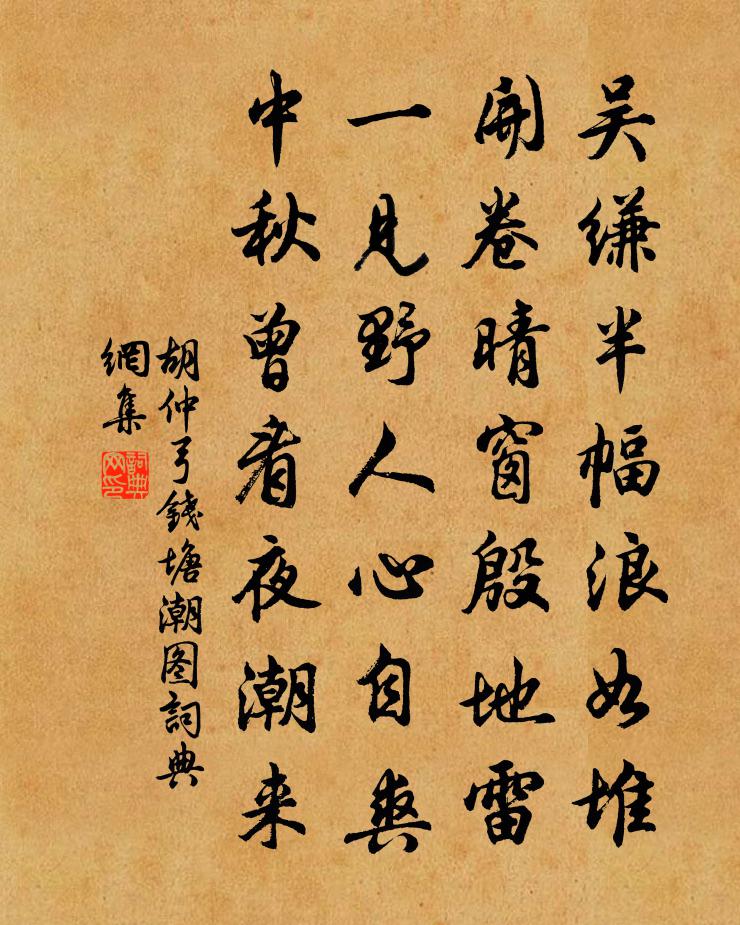 吴缣半幅浪如堆
開卷晴窗殷地雷
一見野人心自爽
中秋曾看夜潮来
胡仲弓錢塘潮图詞典
網集
詞典
网印